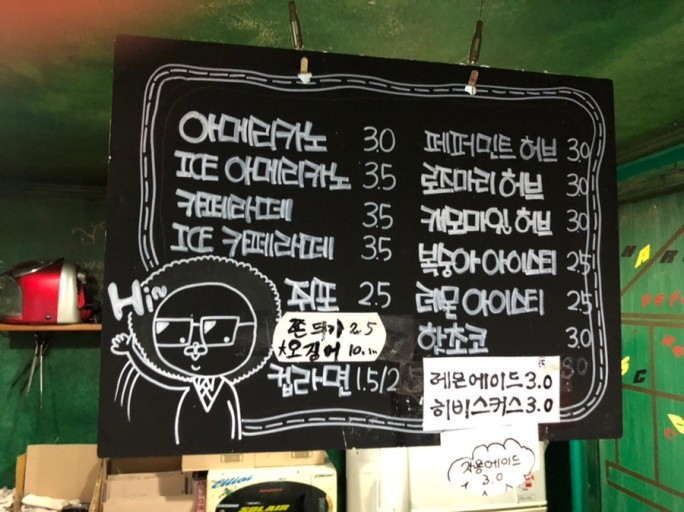 아메리카노 3.0
ICE 아메리카노 3.5
카페라떼 3.5
ICE 카페라떼 3.5
쥐포 2.5
쫀듸기 2.5
오징어 10.
컵라면 1.5/2
Hi~
페퍼민트 허브 3.0
로즈마리 허브 3.0
캐모마일 허브 3.0
복숭아 아이스티 2.5
레몬 아이스티 2.5
핫초코 3.0
레몬에이드 3.0
히비스커스 3.0
자몽에이드
3.0
SOLAIR